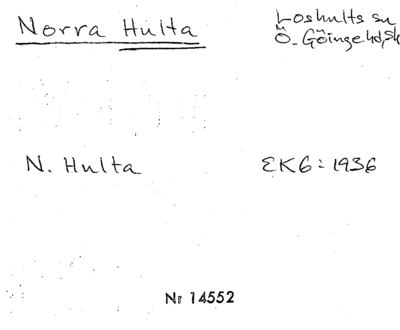 Norra Hulta
Loshults sn
Ö. Göinge hd, Sk
N. Hulta
EK6: 1936
Nr 14552